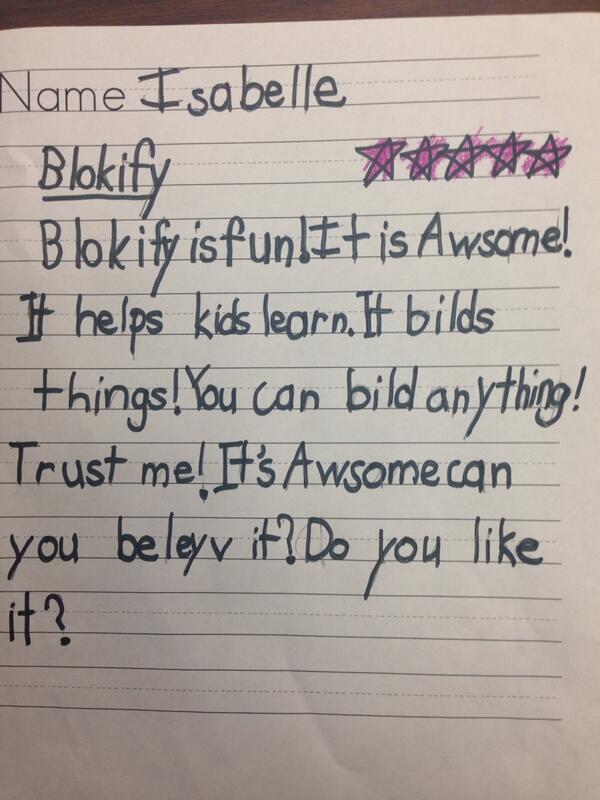 Name Isabelle
Blokify
Blokify is fun! It is Awsome!
It helps kids learn. It bilds
things! You can bild anything!
Trust me! It's Awsome can
you beleyv it? Do you like
it?